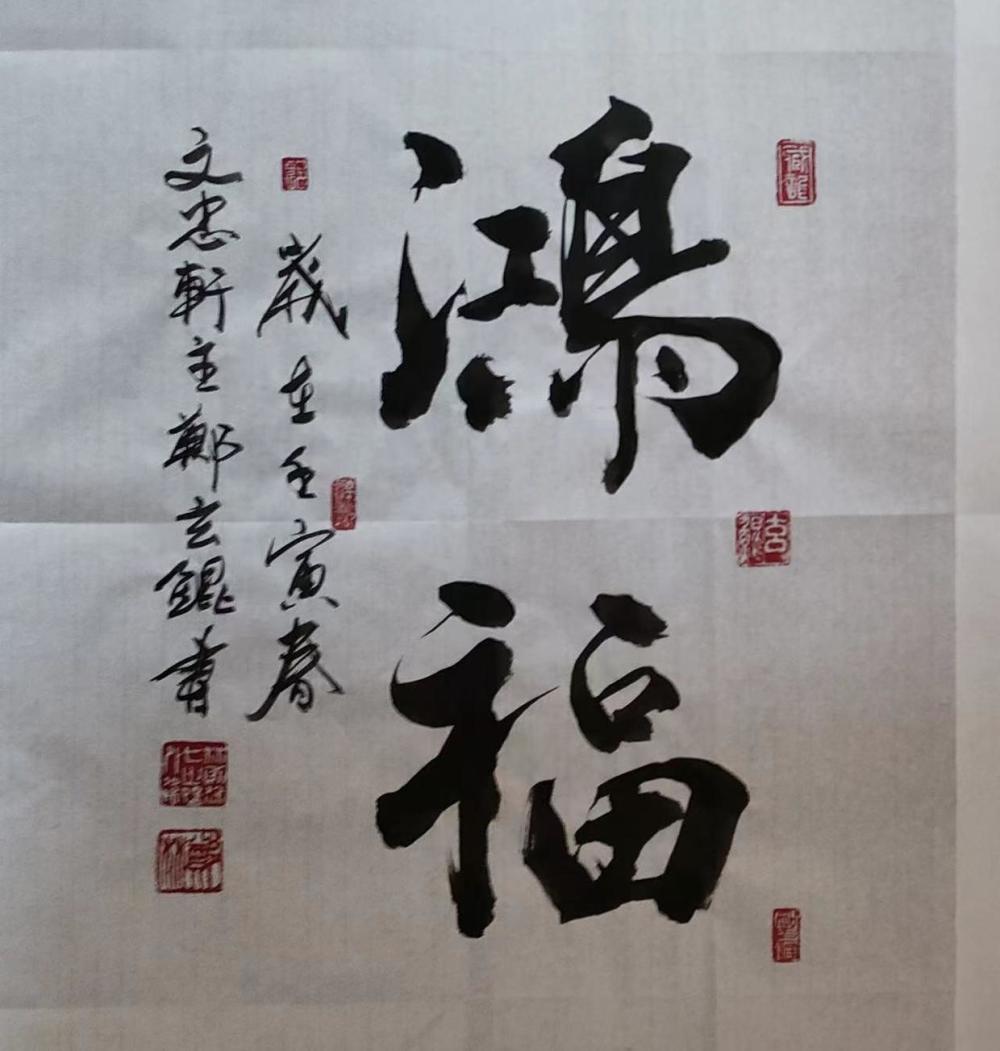 鴻福
歲在壬寅春
文忠軒主鄭玄錕書